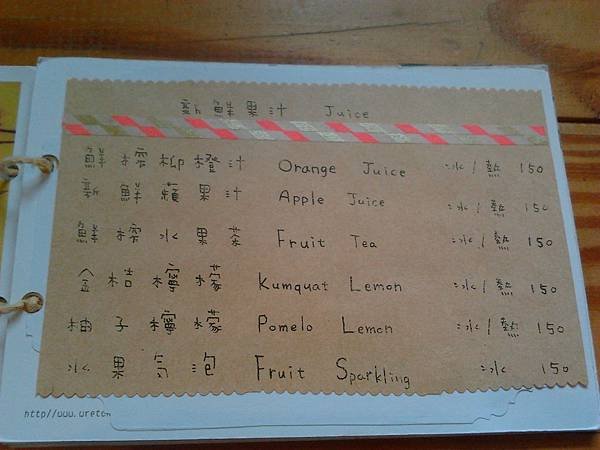 新鮮果汁 Juice
鮮榨柳橙汁 Orange Juice 冰/熱 150
新鮮蘋果汁 Apple Juice 冰/熱 150
鮮榨水果茶 Fruit Tea 冰/熱 150
金桔檸檬 Kumquat Lemon 冰/熱 150
柚子檸檬 Pomelo Lemon 冰/熱 150
水果氣泡 Fruit Sparkling 冰 150